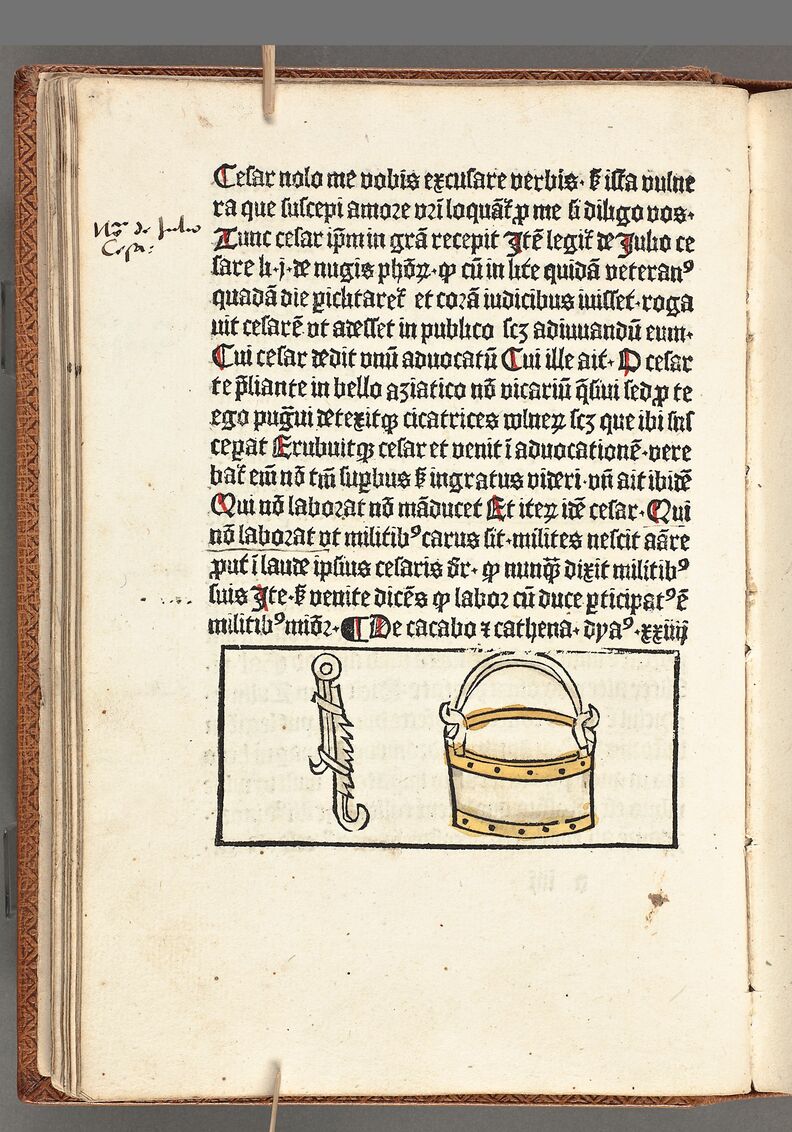 Nᵃ de Julio
Cesar:
Cesar nolo me vobis excusare verbis· sꝫ issa vulne
ra que suscepi amore vr̄i loquāt᷑ ꝓ me si diligo vos·
Tunc cesar ip̄m in grām recepit Itē legit᷑ de Julio ce
sare li·j·de nugis phōꝝ· ꝙ cū in lite quidā veteranꝰ
quadā die ꝑiclitaret᷑ et corā iudicibus iuisset·roga
uit cesarē vt adesset in publico scꝫ adiuuandū eum·
Cui cesar dedit vnū aduocatū Cui ille ait· O cesar
te p̄liante in bello aziatico nō vicariū q̄siui sed ꝓ te
ego puḡui detexitqꝫ cicatrices vulneꝝ scꝫ que ibi sus
ceꝑat Erubuitqꝫ cesar et venit ī aduocationē·vere
bat᷑ em̄ nō tm̄ suꝑbus sꝫ ingratus videri·vn̄ ait ibidē
Qui nō laborat nō māducet Et iteꝝ idē cesar·Qui
nō laborat vt militibꝰ carus sit·milites nescit aāre
ꝓut ī laude ipsius cesaris dr̄· ꝙ nunq̄ dixit militibꝰ
suis Ite·sꝫ venite dicēs ꝙ labor cū duce ꝑticipatꝰ ē
militibꝰ minor· ¶ De cacabo ⁊ cathena· dyaꝰ·xxiiij